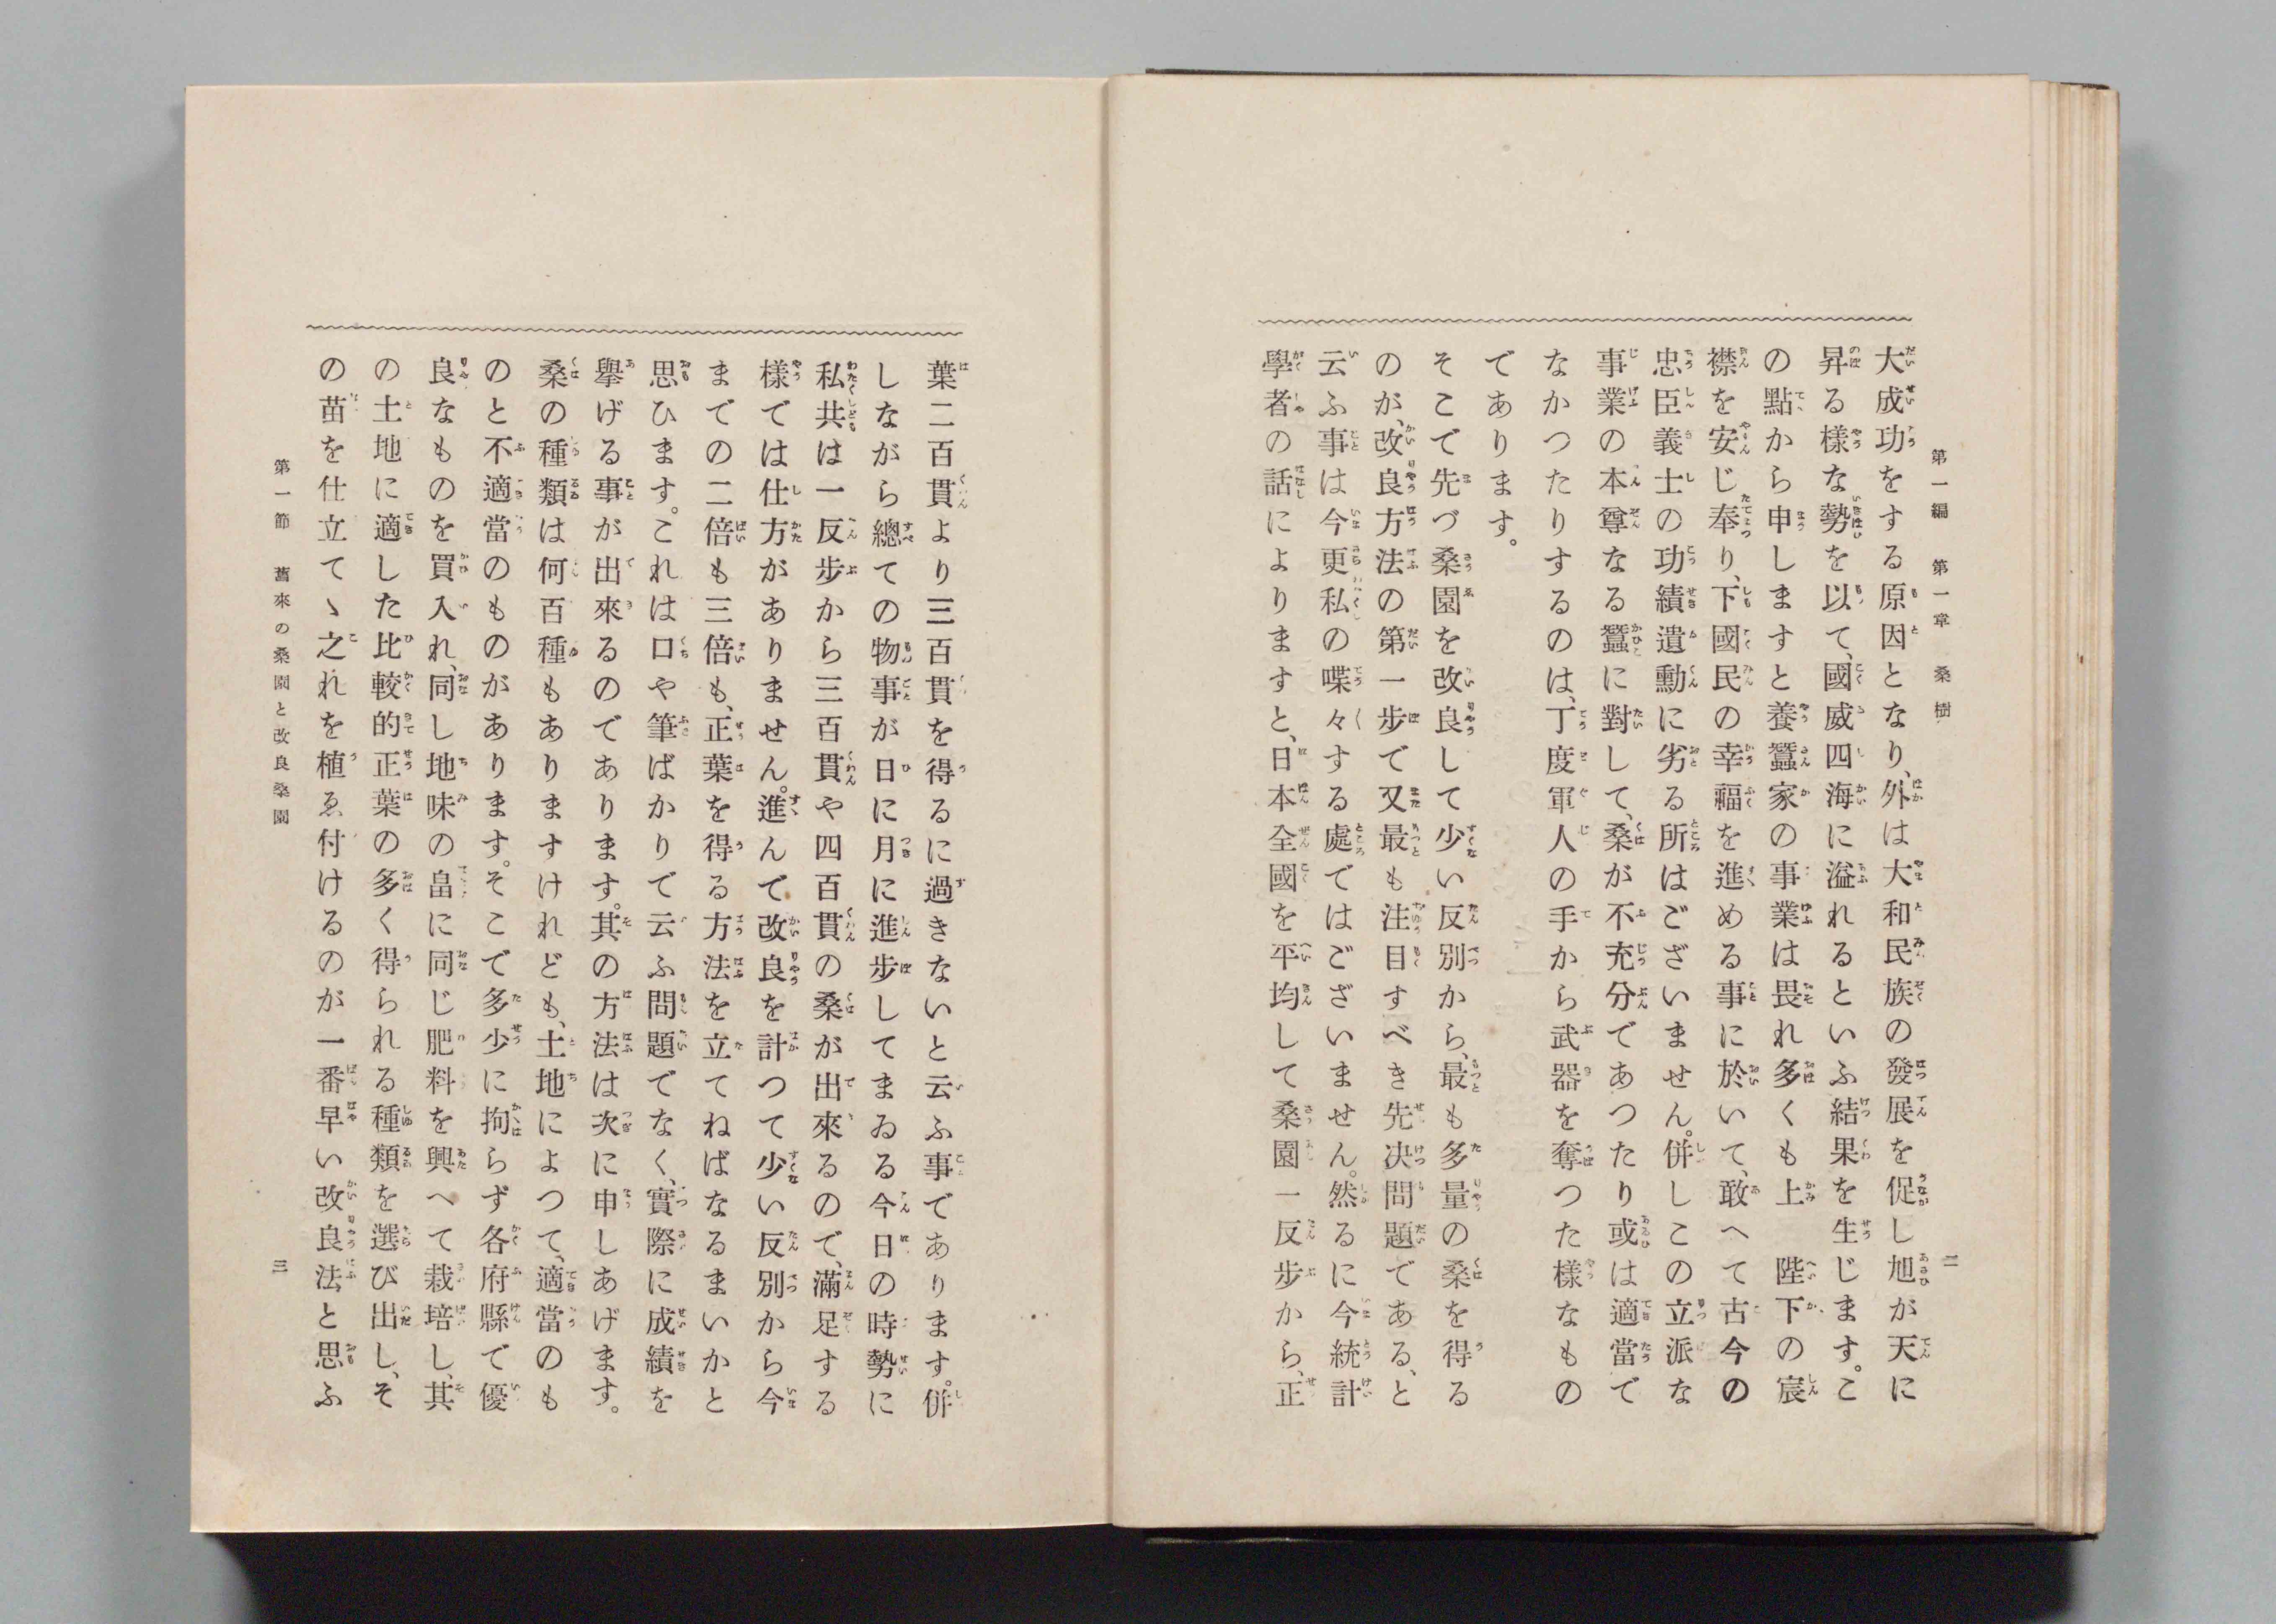 第一編　第一章　桑樹
二
大成功をする原因となり、外は大和民族の發展を促し旭が天に
昇る樣な勢を以て、國威四海に溢れるといふ結果を生じます。こ
の點から申しますと養蠶家の事業は畏れ多くも上　陛下の宸
襟を安じ奉り、下國民の幸福を進める事に於いて、敢へて古今の
忠臣義士の功績遺勳に劣る所はございません。併しこの立派な
事業の本尊なる蠶に對して、桑が不充分であつたり或は適當で
なかつたりするのは、丁度軍人の手から武器を奪つた樣なもの
であります。
そこで先づ桑園を改良して少い反別から、最も多量の桑を得る
のが、改良方法の第一步で又最も注目すべき先决問題である、と
云ふ事は今更私の喋々する處ではございません。然るに今統計
學者の話によりますと、日本全國を平均して桑園一反步から、正
葉二百貫より三百貫を得るに過きないと云ふ事であります。併
しながら總ての物事が日に月に進步してまゐる今日の時勢に
私共は一反步から三百貫や四百貫の桑が出來るので、滿足する
樣では仕方がありません。進んで改良を計つて少い反別から今
までの二倍も三倍も、正葉を得る方法を立てねばなるまいかと
思ひます。これは口や筆ばかりで云ふ問題でなく、實際に成績を
擧げる事が出來るのであります。其の方法は次に申しあげます。
桑の種類は何百種もありますけれども、土地によつて、適當のも
のと不適當のものがあります。そこで多少に拘らず各府縣で優
良なものを買入れ、同し地味の畠に同じ肥料を興へて栽培し、其
の土地に適した比較的正葉の多く得られる種類を選び出し、そ
の苗を仕立てゝ之れを植ゑ付けるのが一番早い改良法と思ふ
第一節　舊來の桑園と改良桑園
三